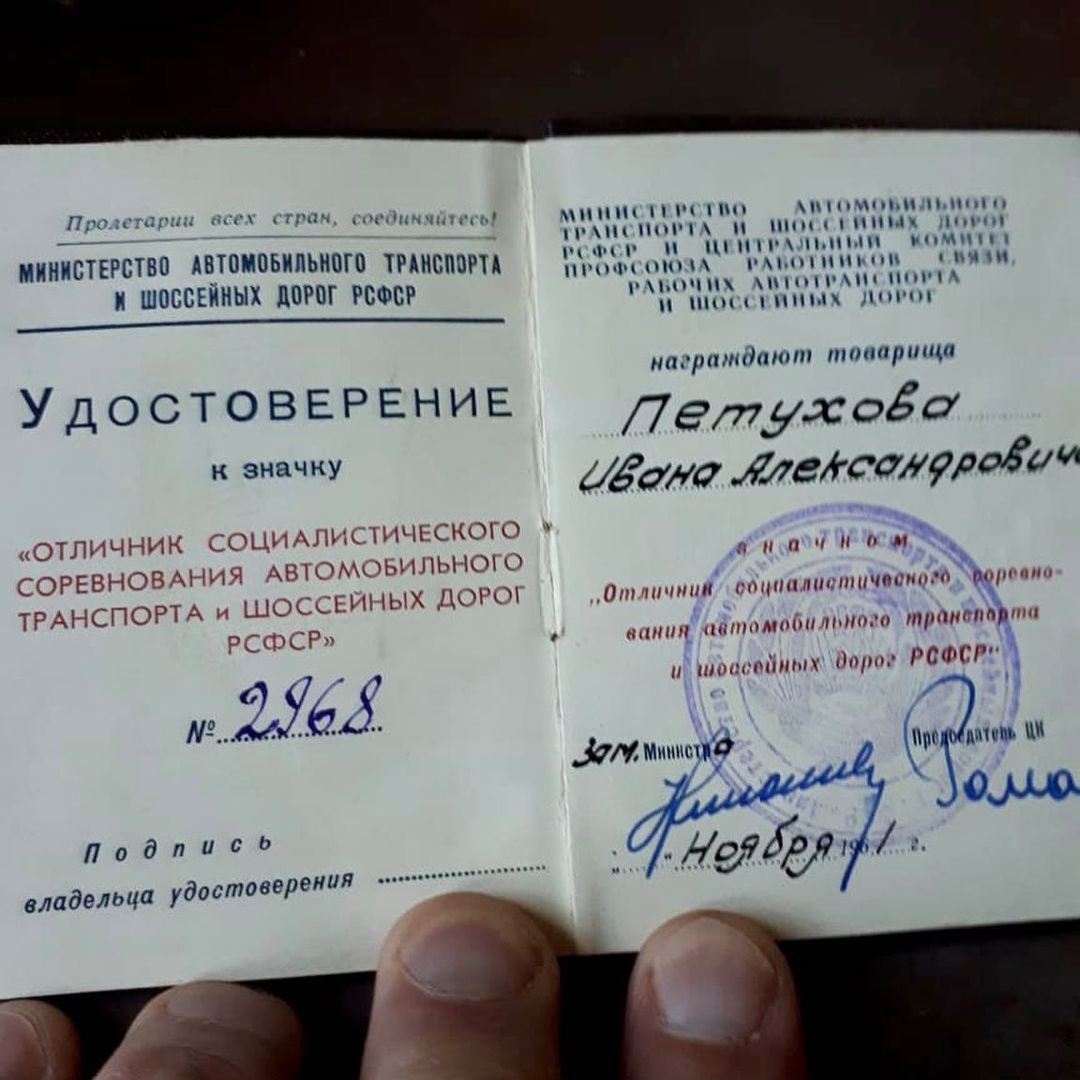 Пролетарии всех стран, соединяйтесь!
МИНИСТЕРСТВО АВТОМОБИЛЬНОГО ТРАНСПОРТА
И ШОССЕЙНЫХ ДОРОГ РСФСР
УДОСТОВЕРЕНИЕ
к значку
«ОТЛИЧНИК СОЦИАЛИСТИЧЕСКОГО
СОРЕВНОВАНИЯ АВТОМОБИЛЬНОГО
ТРАНСПОРТА и ШОССЕЙНЫХ ДОРОГ
РСФСР»
№ 2968
Подпись
владельца удостоверения
МИНИСТЕРСТВО АВТОМОБИЛЬНОГО
ТРАНСПОРТА И ШОССЕЙНЫХ ДОРОГ
РСФСР И ЦЕНТРАЛЬНЫЙ КОМИТЕТ
ПРОФСОЮЗА РАБОТНИКОВ СВЯЗИ,
РАБОЧИХ АВТОТРАНСПОРТА
И ШОССЕЙНЫХ ДОРОГ
награждают товарища
Петухова
Ивана Александрович
значком
„Отличник социалистического соревно-
вания автомобильного транспорта
и шоссейных дорог РСФСР"
Зам. Министра
Председатель ЦК
„ " Ноября 1961 г.